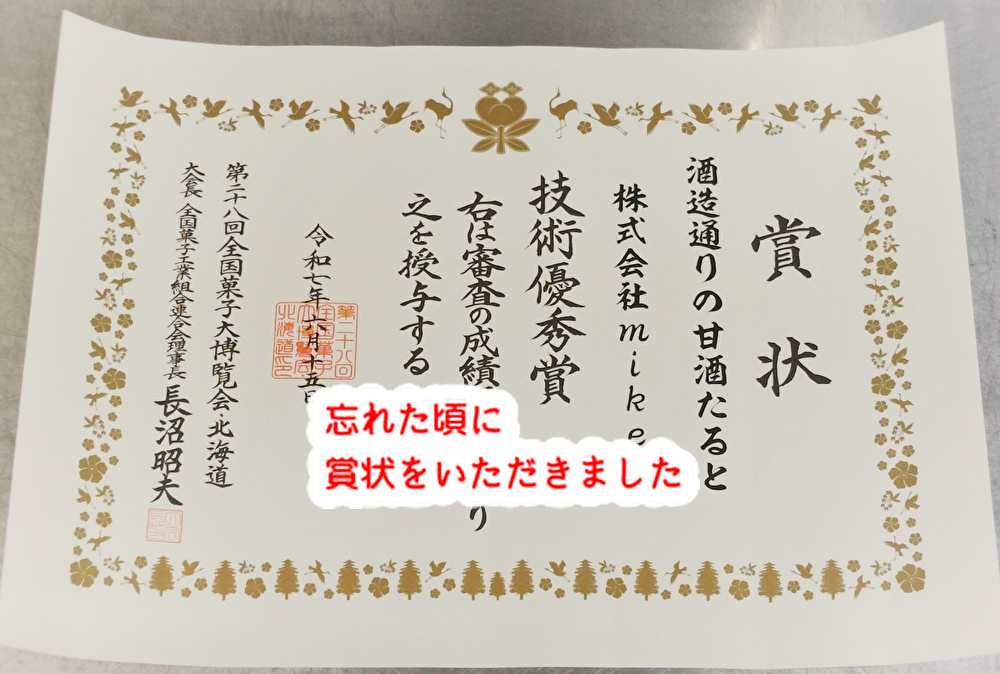 賞状
酒造通りの甘酒たると
株式会社mike
技術優秀賞
右は審査の成績
り
之を授与する
令和七年六月十五日
第二十八回全国菓子大博覧会・北海道
大会長 全国菓子工業組合連合会理事長 長沼昭夫
忘れた頃に
賞状をいただきました